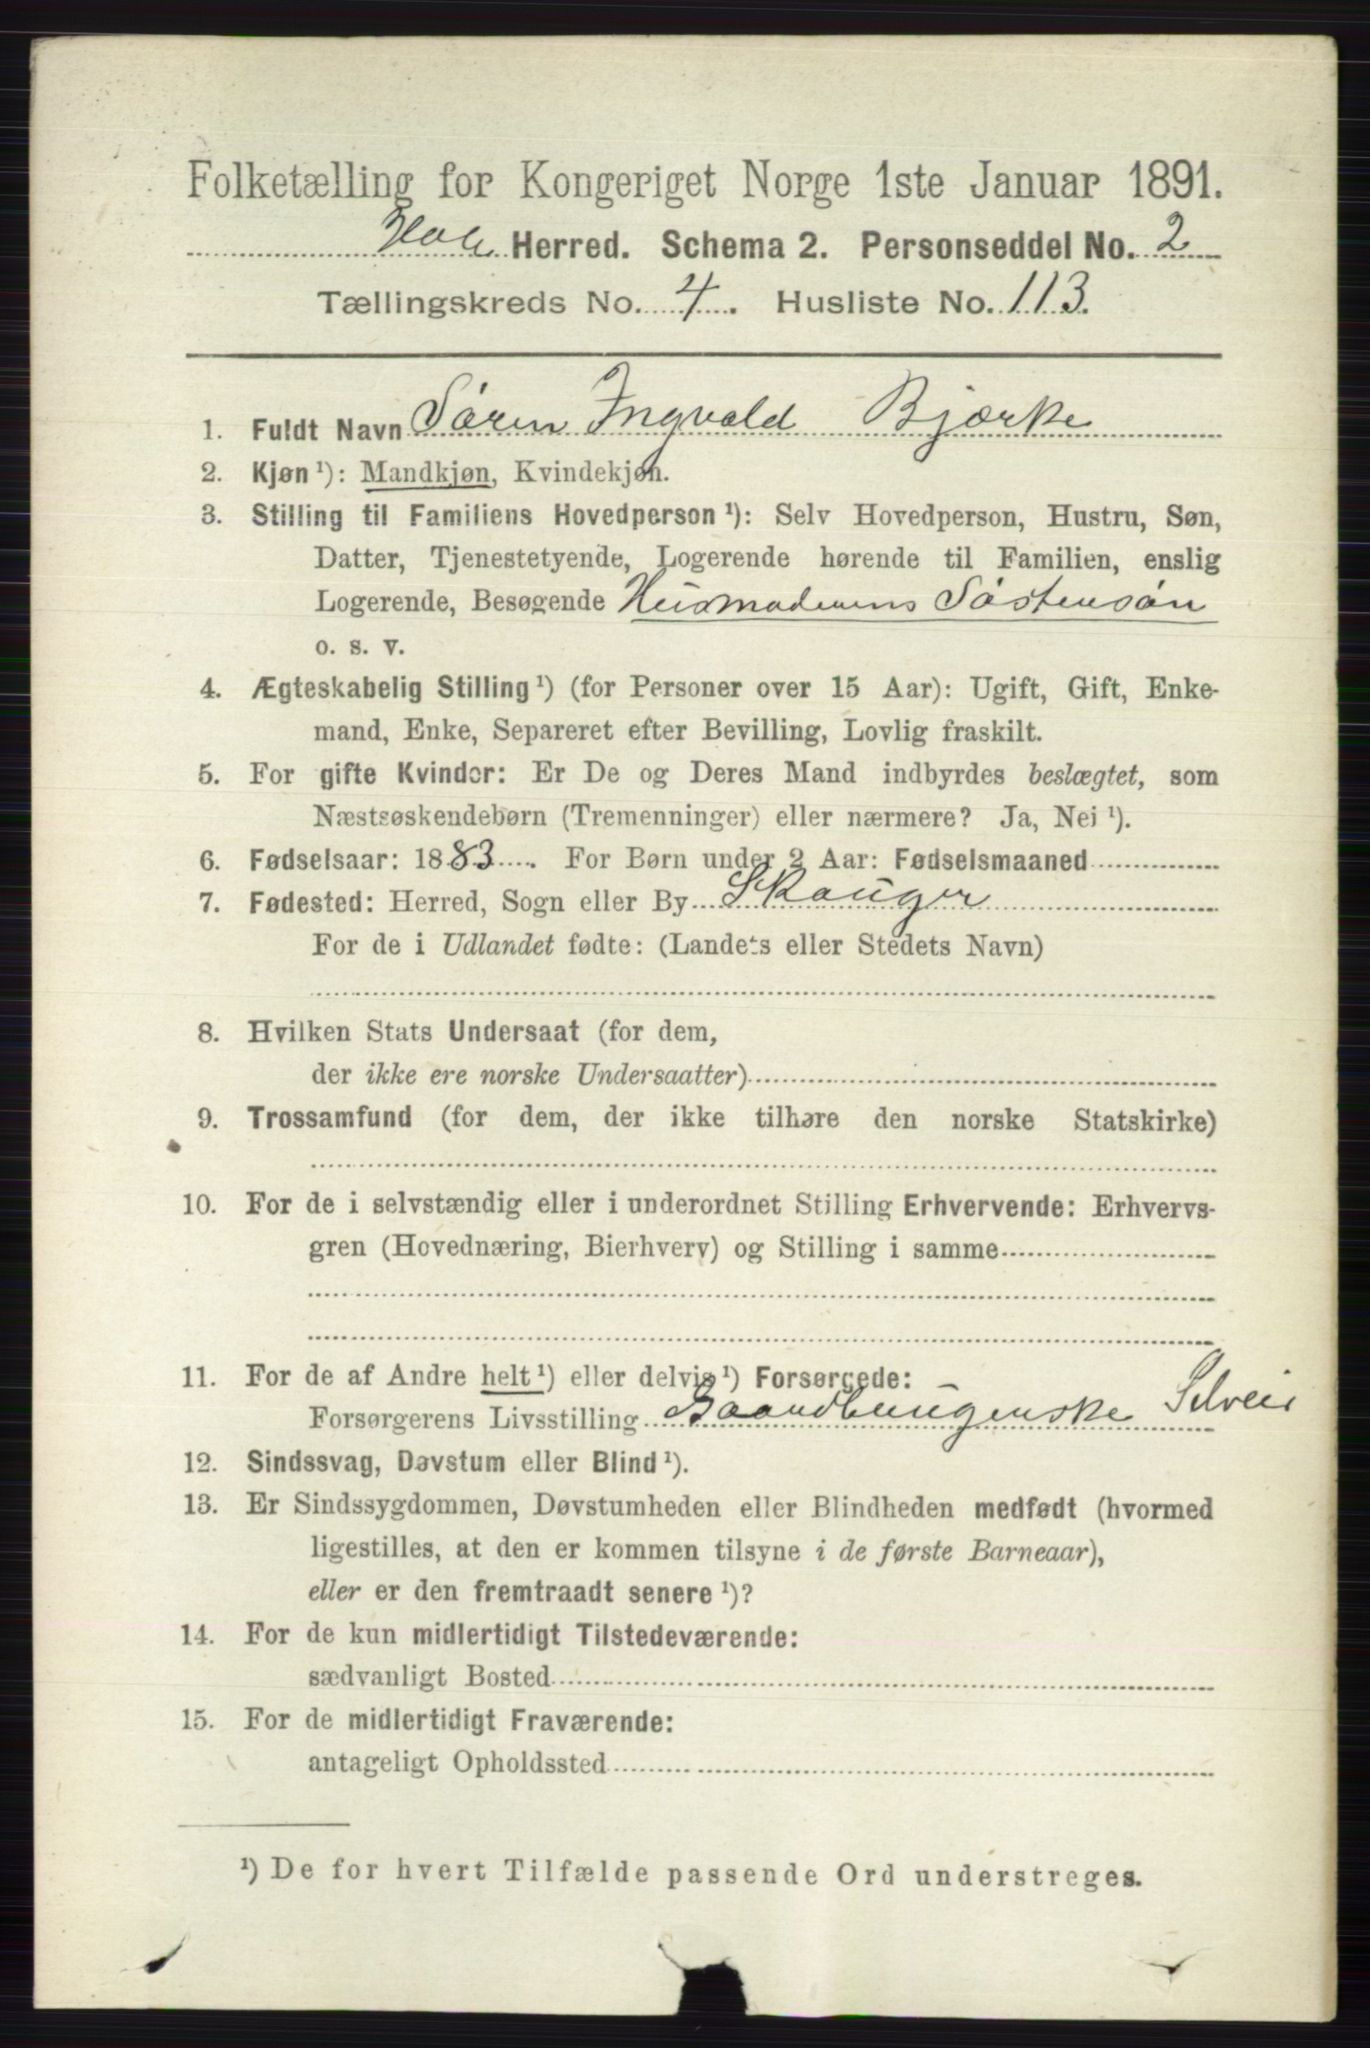 Folketælling for Kongeriget Norge 1ste Januar 1891.
Hole Herred. Schema 2. Personseddel No. 2
Tællingskreds No. 4. Husliste No. 113.
1. Fuldt Navn Søren Ingvald Bjørke
2. Kjøn ¹): Mandkjøn, Kvindekjøn.
3. Stilling til Familiens Hovedperson ¹): Selv Hovedperson, Hustru, Søn,
Datter, Tjenestetyende, Logerende hørende til Familien, enslig
Logerende, Besøgende Husmoderens Søstersøn
o. s. v.
4. Ægteskabelig Stilling ¹) (for Personer over 15 Aar): Ugift, Gift, Enke-
mand, Enke, Separeret efter Bevilling, Lovlig fraskilt.
5. For gifte Kvinder: Er De og Deres Mand indbyrdes beslægtet, som
Næstsøskendebørn (Tremenninger) eller nærmere? Ja, Nei ¹).
6. Fødselsaar: 1883. For Børn under 2 Aar: Fødselsmaaned
7. Fødested: Herred, Sogn eller By Skouger
For de i Udlandet fødte: (Landets eller Stedets Navn)
8. Hvilken Stats Undersaat (for dem,
der ikke ere norske Undersaatter)
9. Trossamfund (for dem, der ikke tilhøre den norske Statskirke)
10. For de i selvstændig eller i underordnet Stilling Erhvervende: Erhvervs-
gren (Hovednæring, Bierhverv) og Stilling i samme
11. For de af Andre helt ¹) eller delvis ¹) Forsørgede:
Forsørgerens Livsstilling Selveier
12. Sindssvag, Døvstum eller Blind ¹).
13. Er Sindssygdommen, Døvstumheden eller Blindheden medfødt (hvormed
ligestilles, at den er kommen tilsyne i de første Barneaar),
eller er den fremtraadt senere ¹)?
14. For de kun midlertidigt Tilstedeværende:
sædvanligt Bosted
15. For de midlertidigt Fraværende:
antageligt Opholdssted
¹) De for hvert Tilfælde passende Ord understreges.